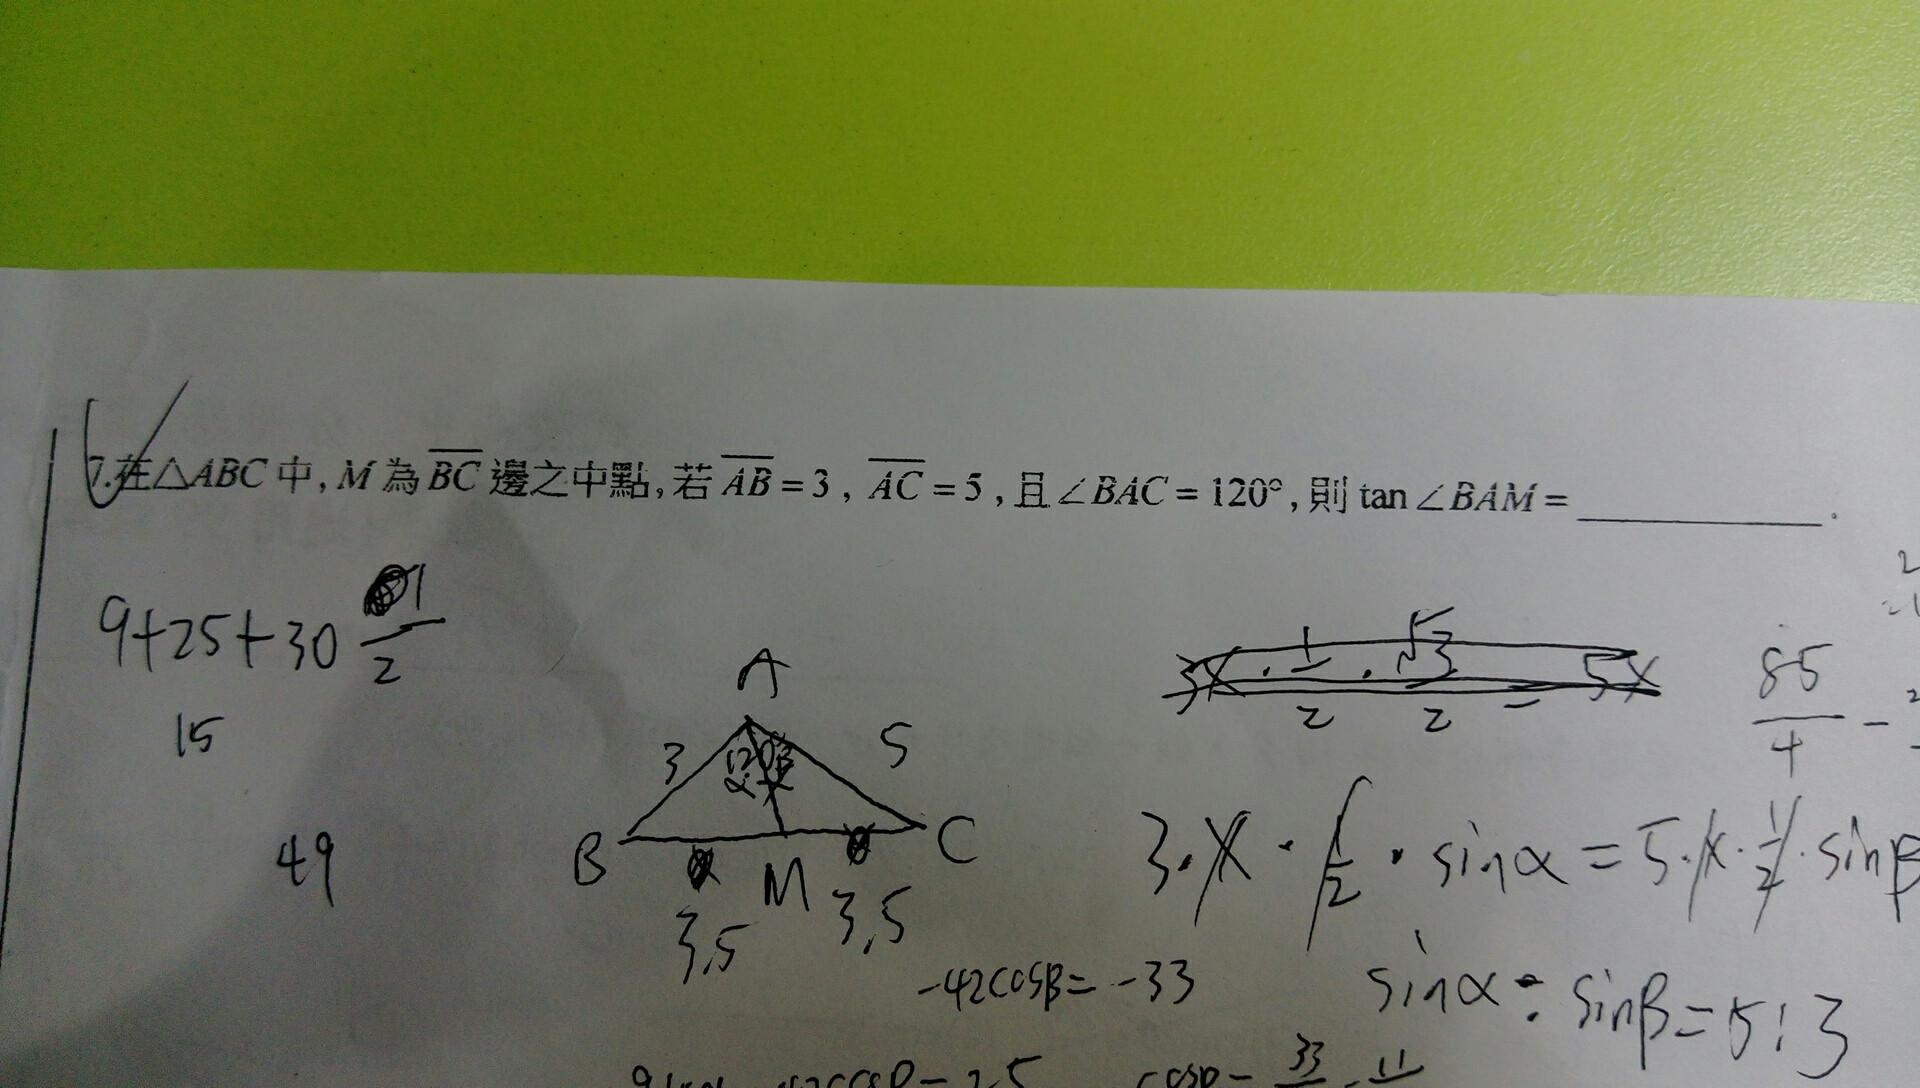 7.在△ABC 中, M 為 BC 邊之中點, 若 AB = 3 , AC = 5 , 且 ∠BAC = 120° , 則 tan ∠BAM = ________ .
9+25+30 1/2
15
49
A
3
5
B
M
C
3.5
3.5
3x · 1/2 · √3/2 = 5x
85/4 -
3 · x · 1/2 · sinα = 5 · x · 1/2 · sinβ
sinα : sinβ = 5 : 3
-42cosβ = -33